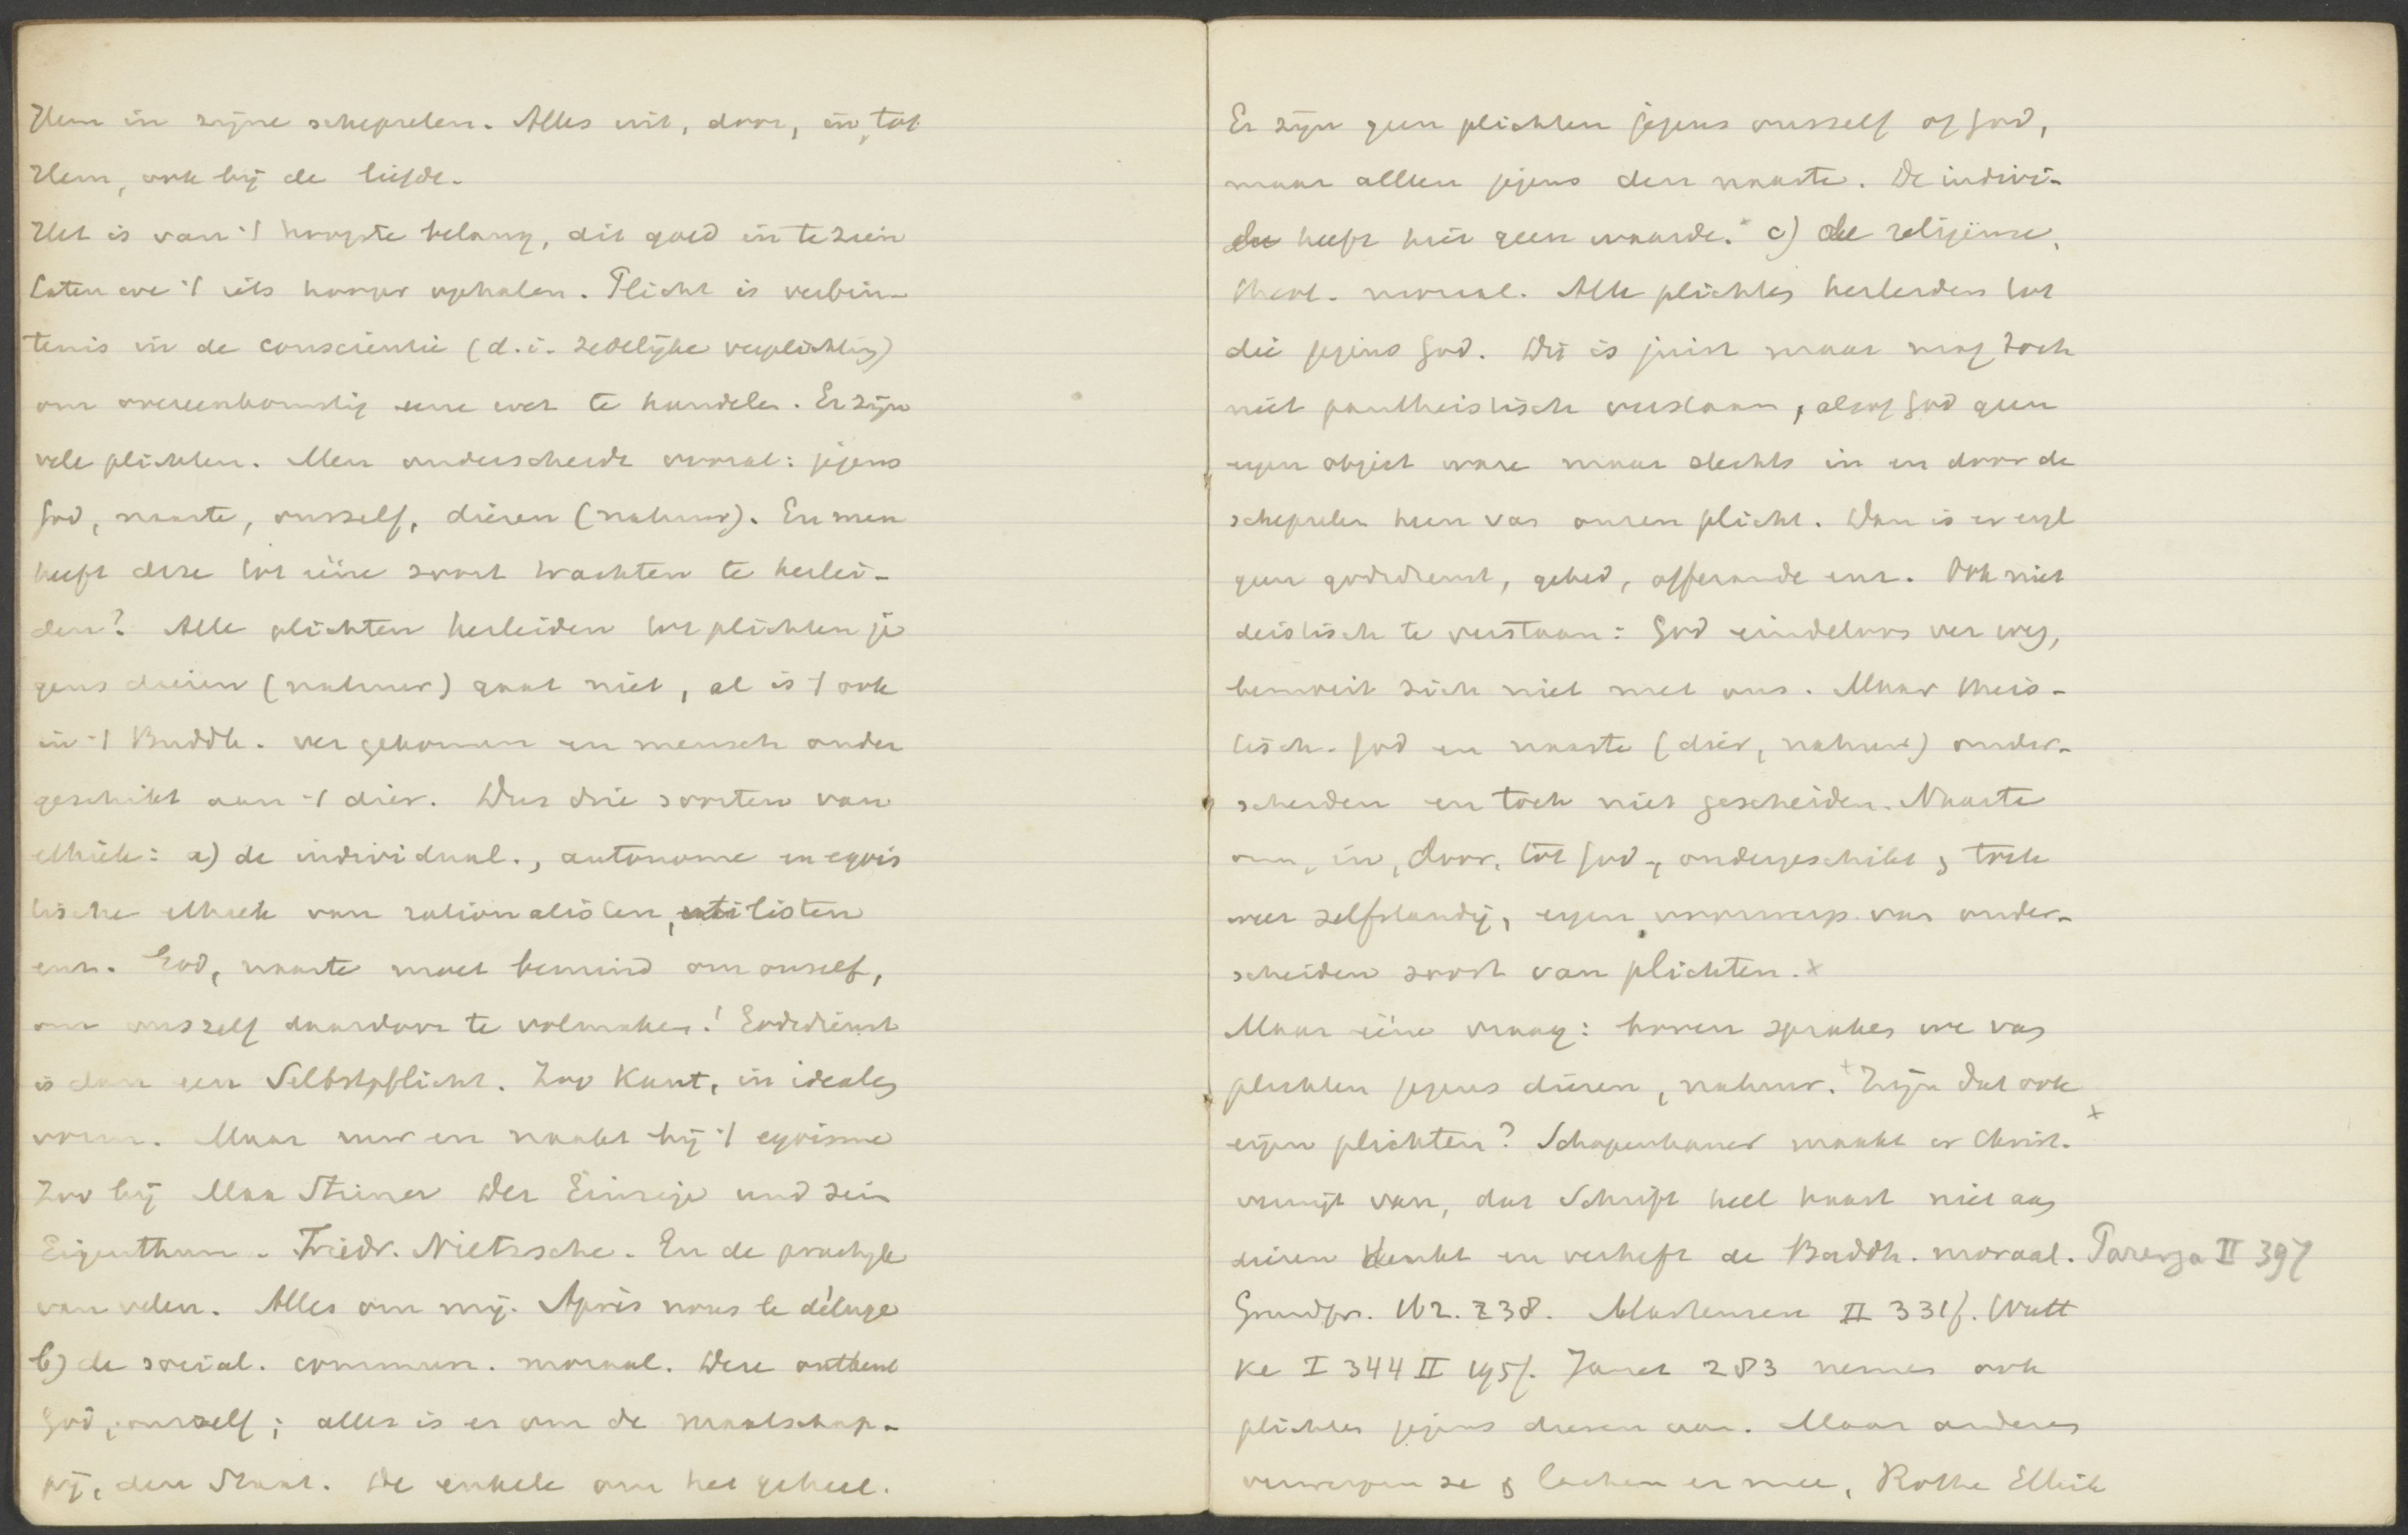 Hem in zijne schepselen. Alles uit, door, in, tot
Hem, ook bij de liefde.
Het is van 't hoogste belang, dit goed in te zien
Laten we 't iets hooger ophalen. Plicht is verbin-
tenis in de conscientie (d.i. zedelijke verplichting)
om overeenkomstig eene wet te handelen. Er zijn
vele plichten. Men onderscheidt vooral: jegens
God, naaste, onszelf, dieren (natuur). En men
heeft deze tot ééne soort trachten te herlei-
den? Alle plichten herleiden tot plichten je
gens dieren (natuur) gaat niet, al is 't ook
in 't Buddh. ver gekomen en mensch onder
geschikt aan 't dier. Dus drie soorten van
ethiek: a) de individual., autonome en egois
tische ethiek van rationalisten, utilisten
enz. God, naaste moet bemind om onszelf,
om onszelf daardoor te volmaken! Godsdienst
is dan een Selbstpflicht. Zoo Kant, in idealen
vorm. Maar ruw en naakt bij 't egoisme
Zoo bij Max Stirner Der Einzige und sein
Eigenthum. Friedr. Nietzsche. En de practijk
van velen. Alles om mij. Après nous le déluge
b) de social. commun. moraal. Deze ontkent
God, onszelf; alles is er om de maatschap-
pij, den Staat. De enkele om het geheel.
Er zijn geen plichten jegens onszelf of God,
maar alleen jegens den naaste. De indivi-
du heeft hier geen waarde. x c) de religieuze,
theol. moraal. Alle plichten herleiden tot
die jegens God. Dit is juist maar mag toch
niet pantheistisch verstaan, alsof God geen
eigen object ware maar slechts in en door de
schepselen heen van onzen plicht. Dan is er eigl
geen godsdienst, gebed, offerande enz. Ook niet
deistisch te verstaan: God eindeloos ver weg,
bemoeit zich niet met ons. Maar theis-
tisch. God en naaste (dier, natuur) onder-
scheiden en toch niet gescheiden. Naaste
om, in, door, tot God, ondergeschikt & toch
weer zelfstandig, eigen voorwerp van onder-
scheiden soort van plichten. x
Maar ééne vraag: boven spraken we van
plichten jegens dieren, natuur. + Zijn dat ook
eigen plichten? Schopenhauer maakt er Christ. x
verwijt van, dat Schrift heel haast niet aan
dieren denkt en verheft de Buddh. moraal. Parerga II 397
Grundpr. 162. 238. Martensen II 331f. Wutt
ke I 344 II 195f. Janet 283 nemen ook
plichten jegens dieren aan. Maar anderen
verwerpen ze & lachen er mee, Rothe Ethik